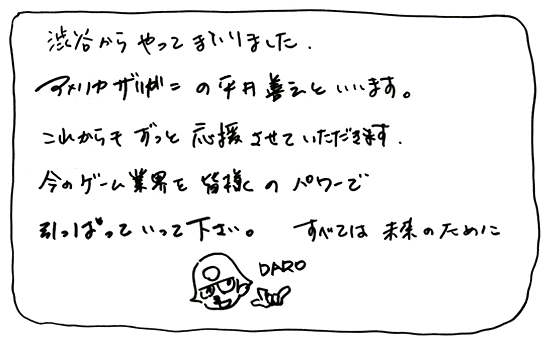 渋谷からやってまいりました.
アメリカザリガニの平井善之といいます。
これからもずっと応援させていただきます.
今のゲーム業界を皆様のパワーで
引っぱっていって下さい。 すべては未来のために
DARO